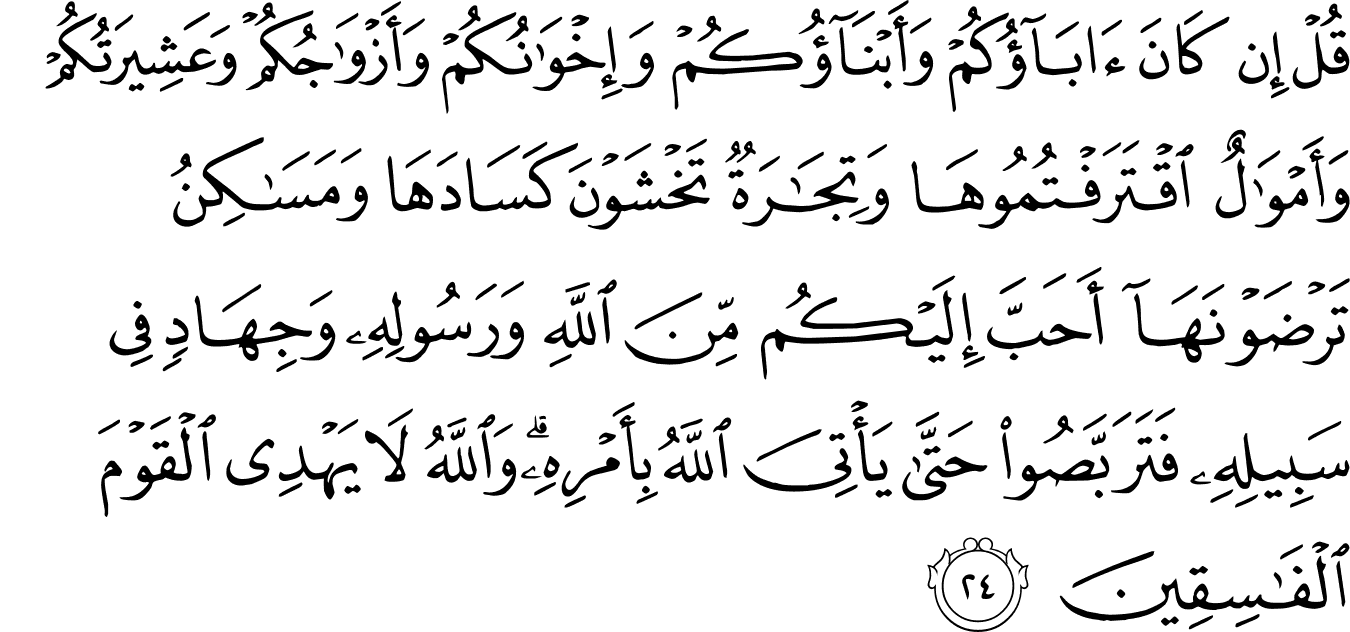 قُلْ إِن كَانَ ءَابَآؤُكُمْ وَأَبْنَآؤُكُمْ وَإِخْوَٰنُكُمْ وَأَزْوَٰجُكُمْ وَعَشِيرَتُكُمْ
وَأَمْوَٰلٌ ٱقْتَرَفْتُمُوهَا وَتِجَٰرَةٌ تَخْشَوْنَ كَسَادَهَا وَمَسَٰكِنُ
تَرْضَوْنَهَآ أَحَبَّ إِلَيْكُم مِّنَ ٱللَّهِ وَرَسُولِهِۦ وَجِهَادٍ فِى
سَبِيلِهِۦ فَتَرَبَّصُوا۟ حَتَّىٰ يَأْتِىَ ٱللَّهُ بِأَمْرِهِۦ ۗ وَٱللَّهُ لَا يَهْدِى ٱلْقَوْمَ
ٱلْفَٰسِقِينَ ٢٤